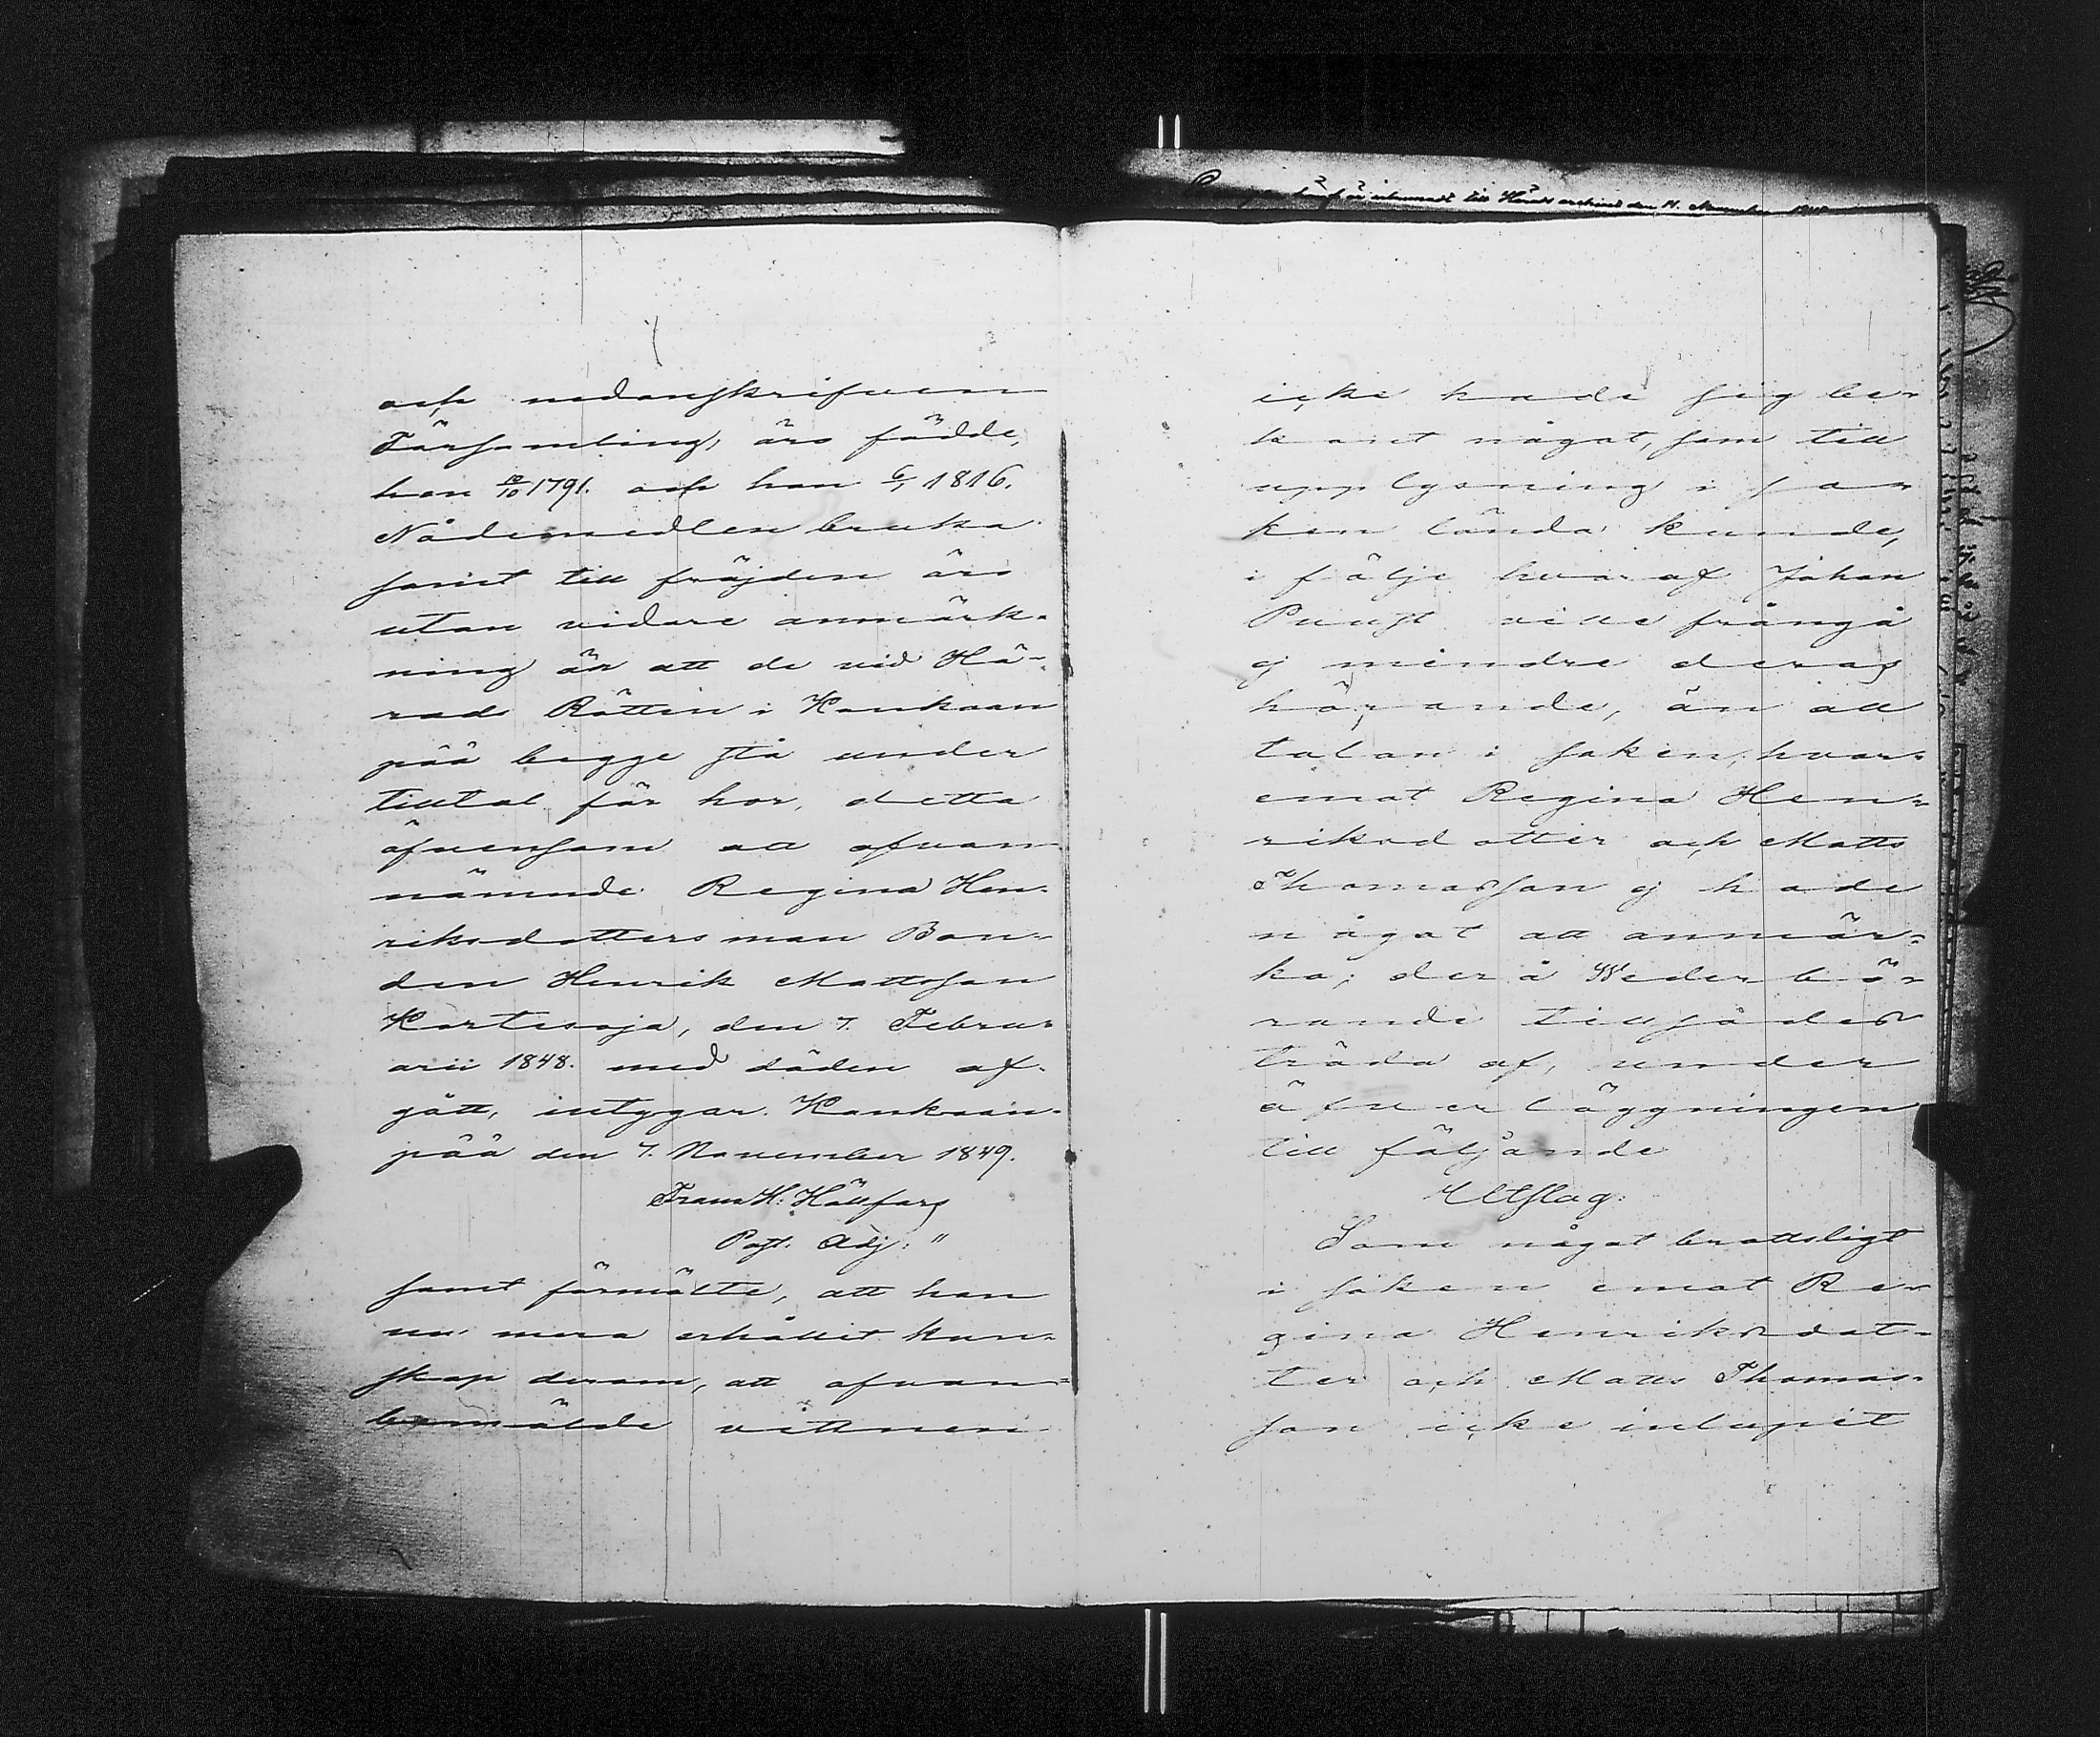 och nedanskrifven
Församling, äro födde,
hon 12/10 1791. och han 6/1 1816.
Nådemedlen bruka
samt till fräjden äro
utan vidare anmärk-
ning än att de vid Hä-
rads Rätten i Kankaan
pää begge stå under
tilltal för hor, detta
äfvensom att ofvan
nämnde Regina Hen-
riksdotters man Bon-
den Henrik Mattsson
Kortesoja, den 7. Febru-
arii 1848. med döden af-
gått, intygar. Kankaan-
pää den 7. November 1849.
Frans H: Hällfors
Past. Adj: "
samt förmälte, att han
nu mera erhållit kun-
skap derom, att ofvan-
bemälde vittnen
icke hade sig be-
kant något, som till
upplysning i sa-
ken lända kunde,
i följe hvaraf Johan
Puust ville frångå
ej mindre deras
hörande, än all
talan i saken, hvar-
emot Regina Hen-
riksdotter och Matts
Thomasson ej hade
något att anmär-
ka; derå Wederbö-
rande tillsades
träda af, under
öfverläggningen
till följande
Utslag:
Som något brottsligt
i saken emot Re-
gina Henriksdot-
ter och Matts Thomas-
son icke inlupit
till Härads archivet den 14. November